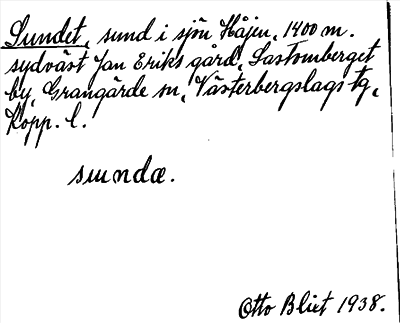 Sundet, sund i sjön Håjen, 1400 m.
sydväst Jan Eriks gård, Lastomberget
by, Grangärde sn, Västerbergslags tg,
Kopp. l.
sundæ.
Otto Blixt 1938.